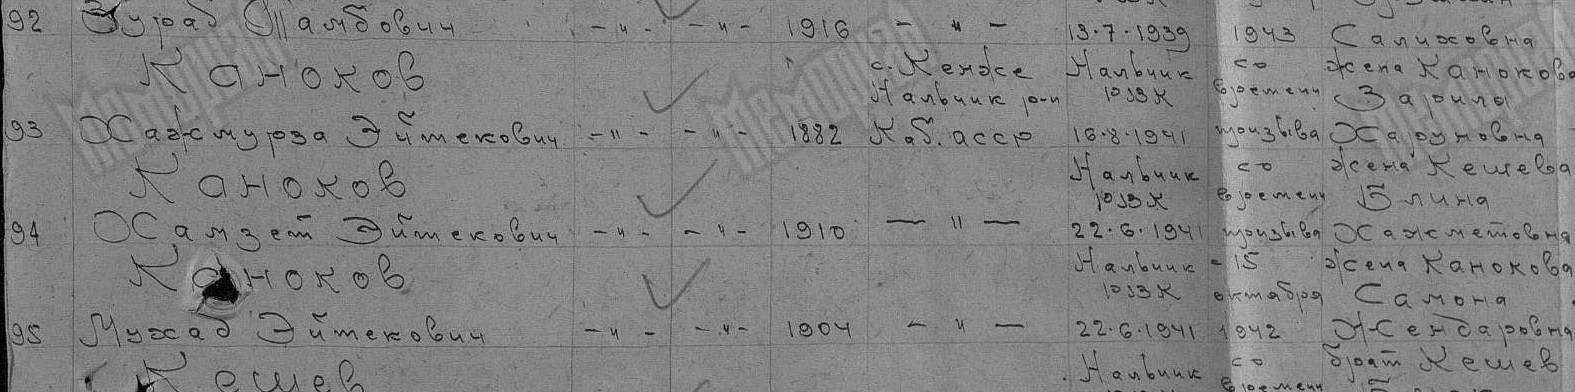 92 Зураб Памбович —"— —"— 1916 —"— 13.7.1939 1943 Салиховна
Каноков с. Кенже Нальчик со жена Канокова
Нальчик р-н РВК времени Зарила
93 Хажмурза Эйтекович —"— —"— 1882 Каб. асср 16.8.1941 призыва Харуновна
Каноков Нальчик со жена Кешева
РВК времени Блина
94 Хамзет Эйтекович —"— —"— 1910 —"— 22.6.1941 призыва Хажметовна
Каноков Нальчик -15 жена Канокова
РВК октября Самона
95 Мухад Эйтекович —"— —"— 1904 —"— 22.6.1941 1942 Жендаровна
Кешев Нальчик со брат Кешев
времени